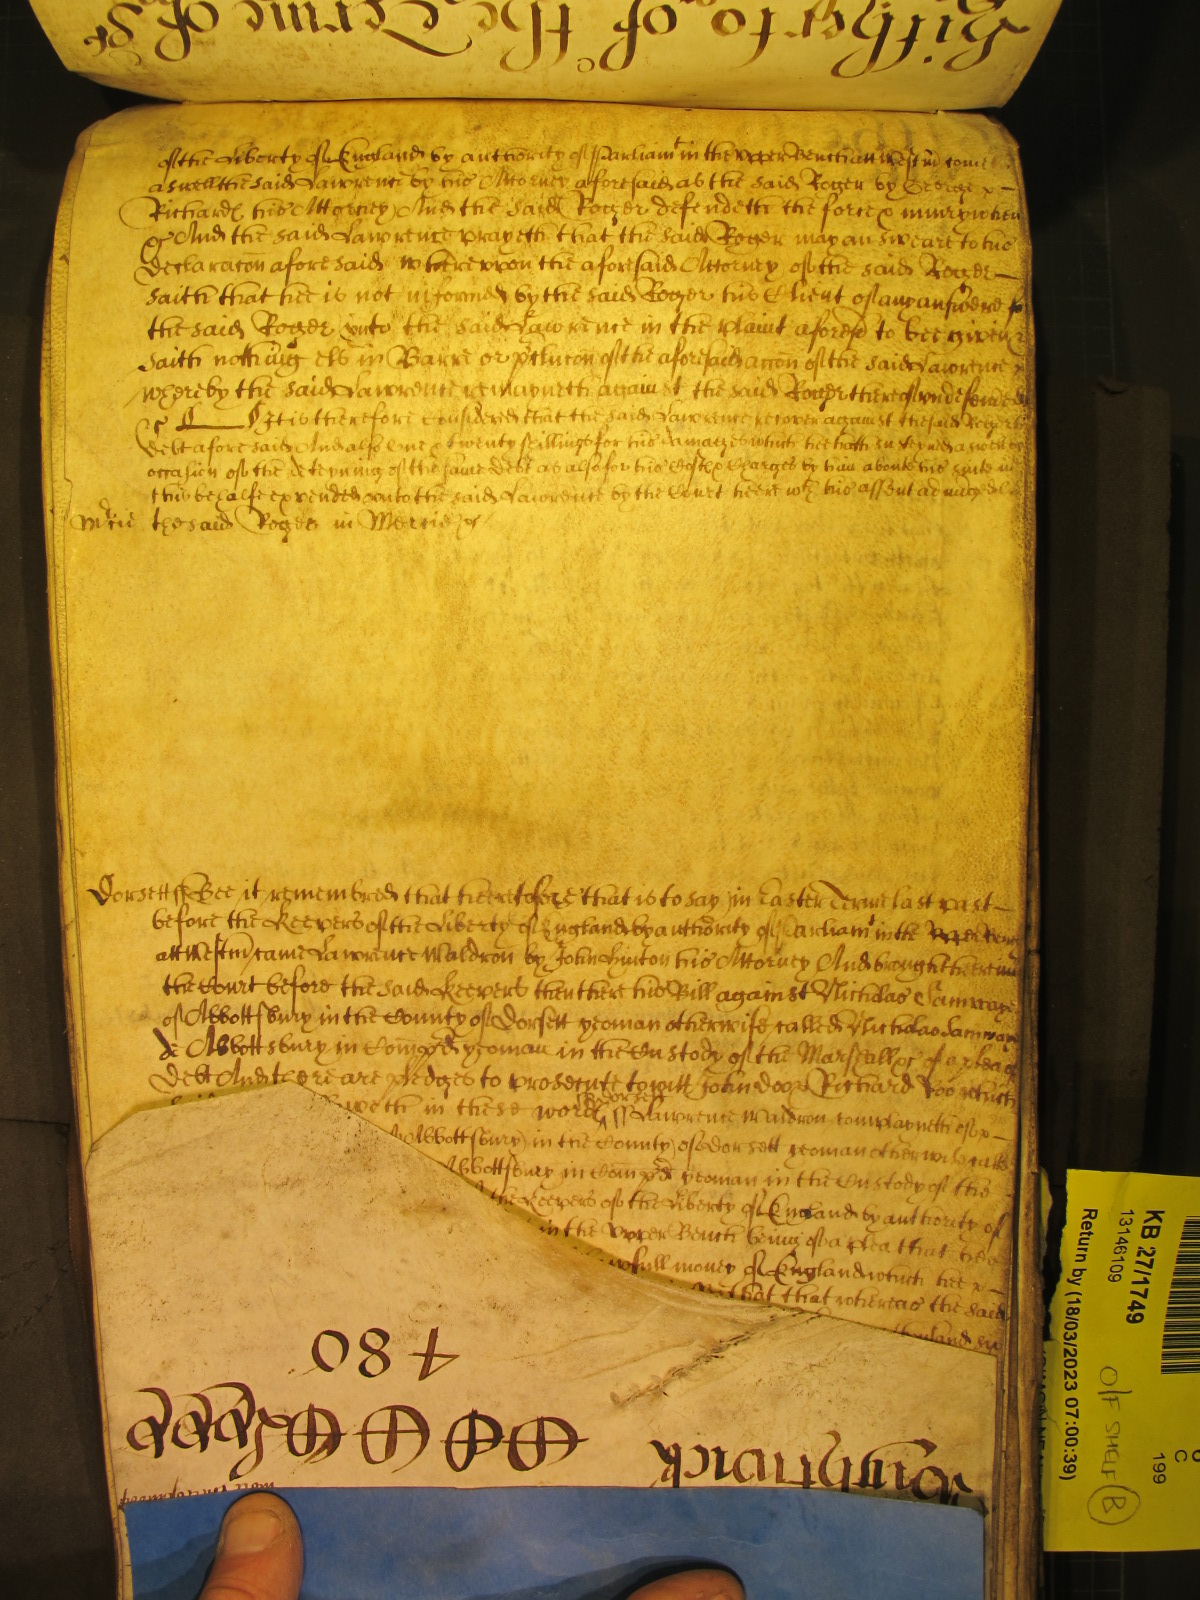 hitherto of the Terme of
of the Liberty of England by authority of Parliamt in the upper Bench at Westm come
aswell the said Lawrence by his Attorney aforesaid as the said Roger by George
Richards his Attorney And the said Roger defendeth the force & iniury when
&c And the said Lawrence prayeth that the said Roger may answeare to his
declaracon aforesaid whereupon the aforesaid Attorney of the said Roger
saith that hee is not informed by the said Roger his Client of any answere
the said Roger unto the said Lawrence in the plaint aforesd to bee given
saith nothing els in Barre or of the aforesaid accon of the said Lawrence
whereby the said Lawrence remayneth against the said Roger thereof undefended
&c It is therefore Considered that the said Lawrence recover against the said Roger his
debt aforesaid And also one & twenty shillings for his damages which hee hath susteyned
occasion of the deteyning of the same debt as also for his Costs & Charges by him about his suite in
this behalfe expended unto the said Lawrence by the Court heere wth his assent adiudged
the said Roger in Mercie &c
Dorsett ss Bee it remembred that heeretofore that is to say in Easter Terme last past
before the Keepers of the Liberty of England by authority of Parliamt in the upper Bench
at Westm came Lawrence Waldron by John Hinton his Attorney And brought heere into
the Court before the said Keepers then there his Bill against Nicholas Samwaye
of Abbottsbury in the County of Dorsett yeoman otherwise called Nicholas Samway
de Abbottsbury in Com pd yeoman in the Custody of the Marshall &c of a plea of
debt And there are pledges to prosecute to witt John doo & Richard Roo which
in these words Dorsett ss Lawrence Waldron complayneth of
Abbottsbury in the County of Dorsett yeoman otherwise called
Abbottsbury in Com pd yeoman in the Custody of the
the Keepers of the Liberty of England by authority of
in the Upper Bench being of a plea that hee
lawfull money of England which hee
that whereas the said
480
KB 27/1749
13146109
Return by (18/03/2023 07:00:39)
O/F SHELF B
C
199